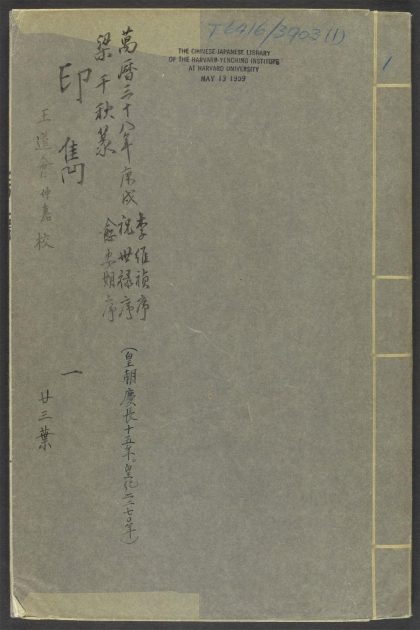 T6416/3903(1)
1
THE CHINESE-JAPANESE LIBRARY
OF THE HARVARD-YENCHING INSTITUTE
AT HARVARD UNIVERSITY
MAY 13 1959
萬曆三十八年庚戌
李維禎序
祝世祿序
序
(皇朝慶長十五年、皇紀二二七〇年)
梁千秋篆
印雋
一
王道會仲嘉校
廿三葉